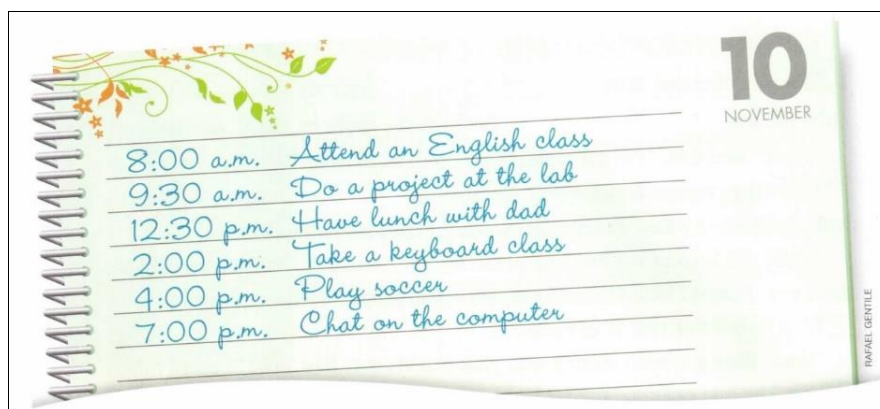 10
NOVEMBER
8:00 a.m. Attend an English class
9:30 a.m. Do a project at the lab
12:30 p.m. Have lunch with dad
2:00 p.m. Take a keyboard class
4:00 p.m. Play soccer
7:00 p.m. Chat on the computer
RAFAEL GENTILE